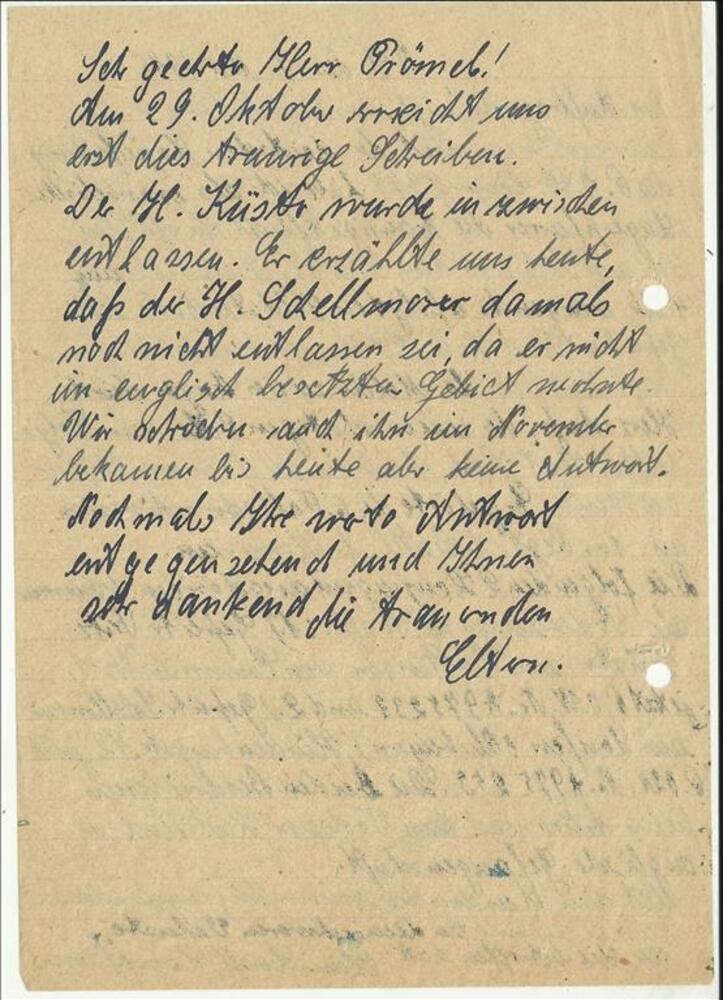 Sehr geehrter Herr Prömel!
Am 29. Oktober erreicht uns
erst dies traurige Schreiben.
Der H. Küster wurde inzwischen
entlassen. Er erzählte uns heute,
daß der H. Schellmoser damals
noch nicht entlassen sei, da er nicht
im englisch besetzten Gebiet wohnte.
Wir schrieben auch ihn im November
bekamen bis heute aber keine Antwort.
Nochmals Ihre werte Antwort
entgegensehend und Ihnen
sehr dankend die trauernden
Eltern.